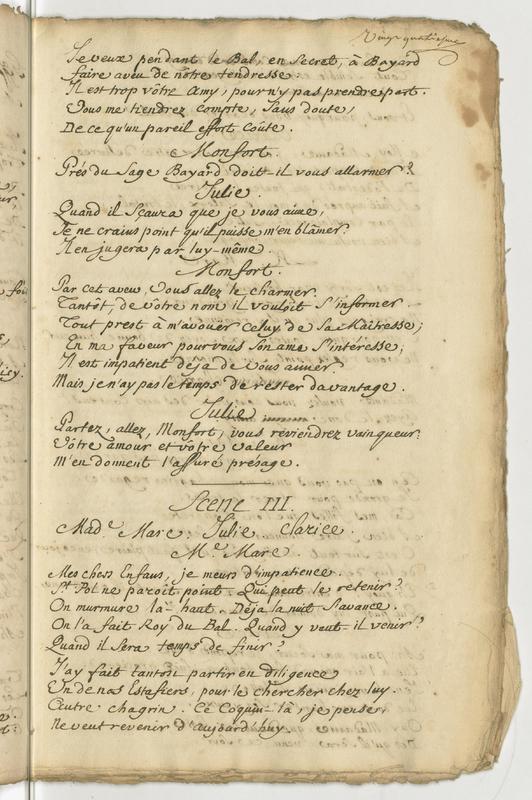 Vingt quatriesme
Je veux pendant le Bal, en Secret, à Bayard
faire aveu de nôtre tendresse.
Il est trop vôtre Amy, pour n'y pas prendre part.
Vous me tiendrez compte, Sans doute,
De ce qu'un pareil effort coûte.
Monfort.
Prés du Sage Bayard doit-il vous allarmer?
Julie.
Quand il Sçaura que je vous aime,
Je ne crains point qu'il puisse m'en blâmer.
Il en jugera par luy-même.
Monfort.
Par cet aveu, Vous allez le charmer.
Tantôt, de vôtre nom il vouloit S'informer
Tout prest à m'avoüer celuy de Sa Maitresse;
En ma faveur pour vous Son ame S'intéresse;
Il est impatient déja de vous aimer
Mais je n'ay pas le temps de rester davantage.
Julie
Partez, allez, Monfort, vous reviendrez vainqueur.
Vôtre amour et vôtre valeur
M'en donnent l'assuré présage.
Scene III.
Mad.e Marc. Julie. Clarice.
M.e Marc.
Mes chers Enfans, je meurs d'impatience.
St. Pol ne paroît point. Qui peut le retenir?
On murmure là-haut. Déja la nuit S'avance.
On l'a fait Roy du Bal. Quand y veut-il venir?
Quand il Sera temps de finir?
J'ay fait tantôt partir en diligence
Un de nos Estafiers, pour le chercher chez luy.
Autre chagrin. Ce Coquin-là, je pense,
Ne veut revenir d'aujourd'huy.